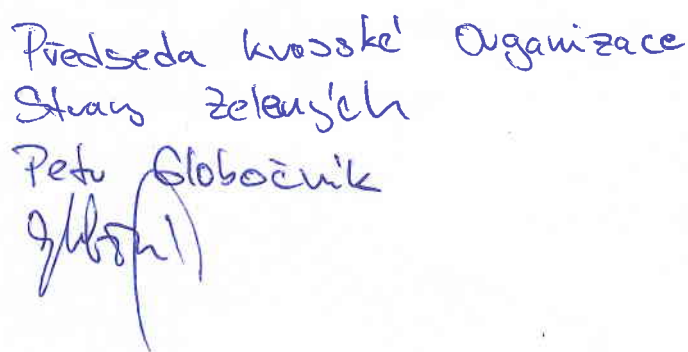 Předseda krajské Organizace
Strany Zelených
Petr Globočník